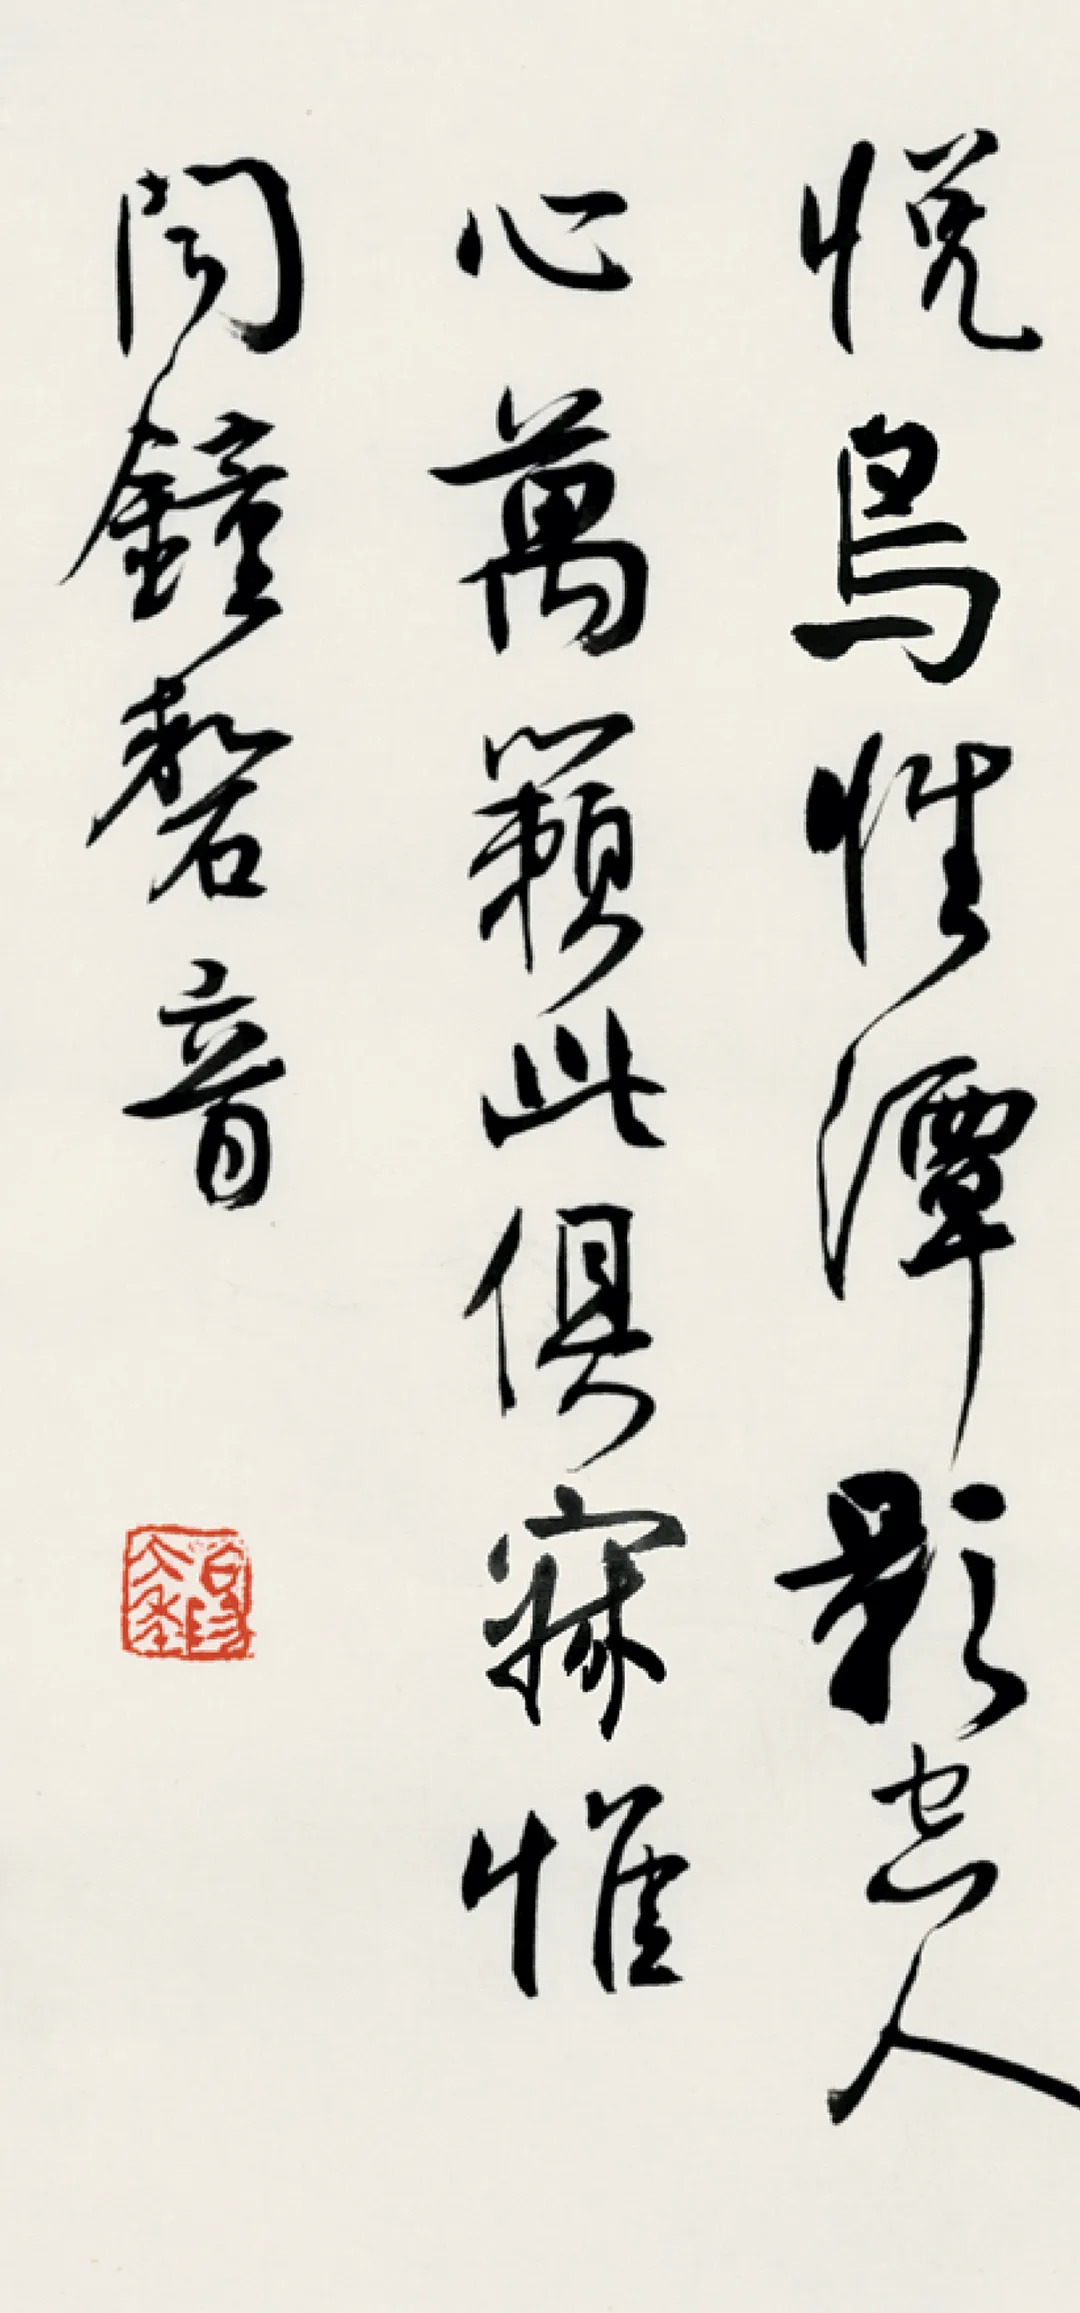 悅鳥性潭影空人
心萬籟此俱寂惟
聞鐘磬音